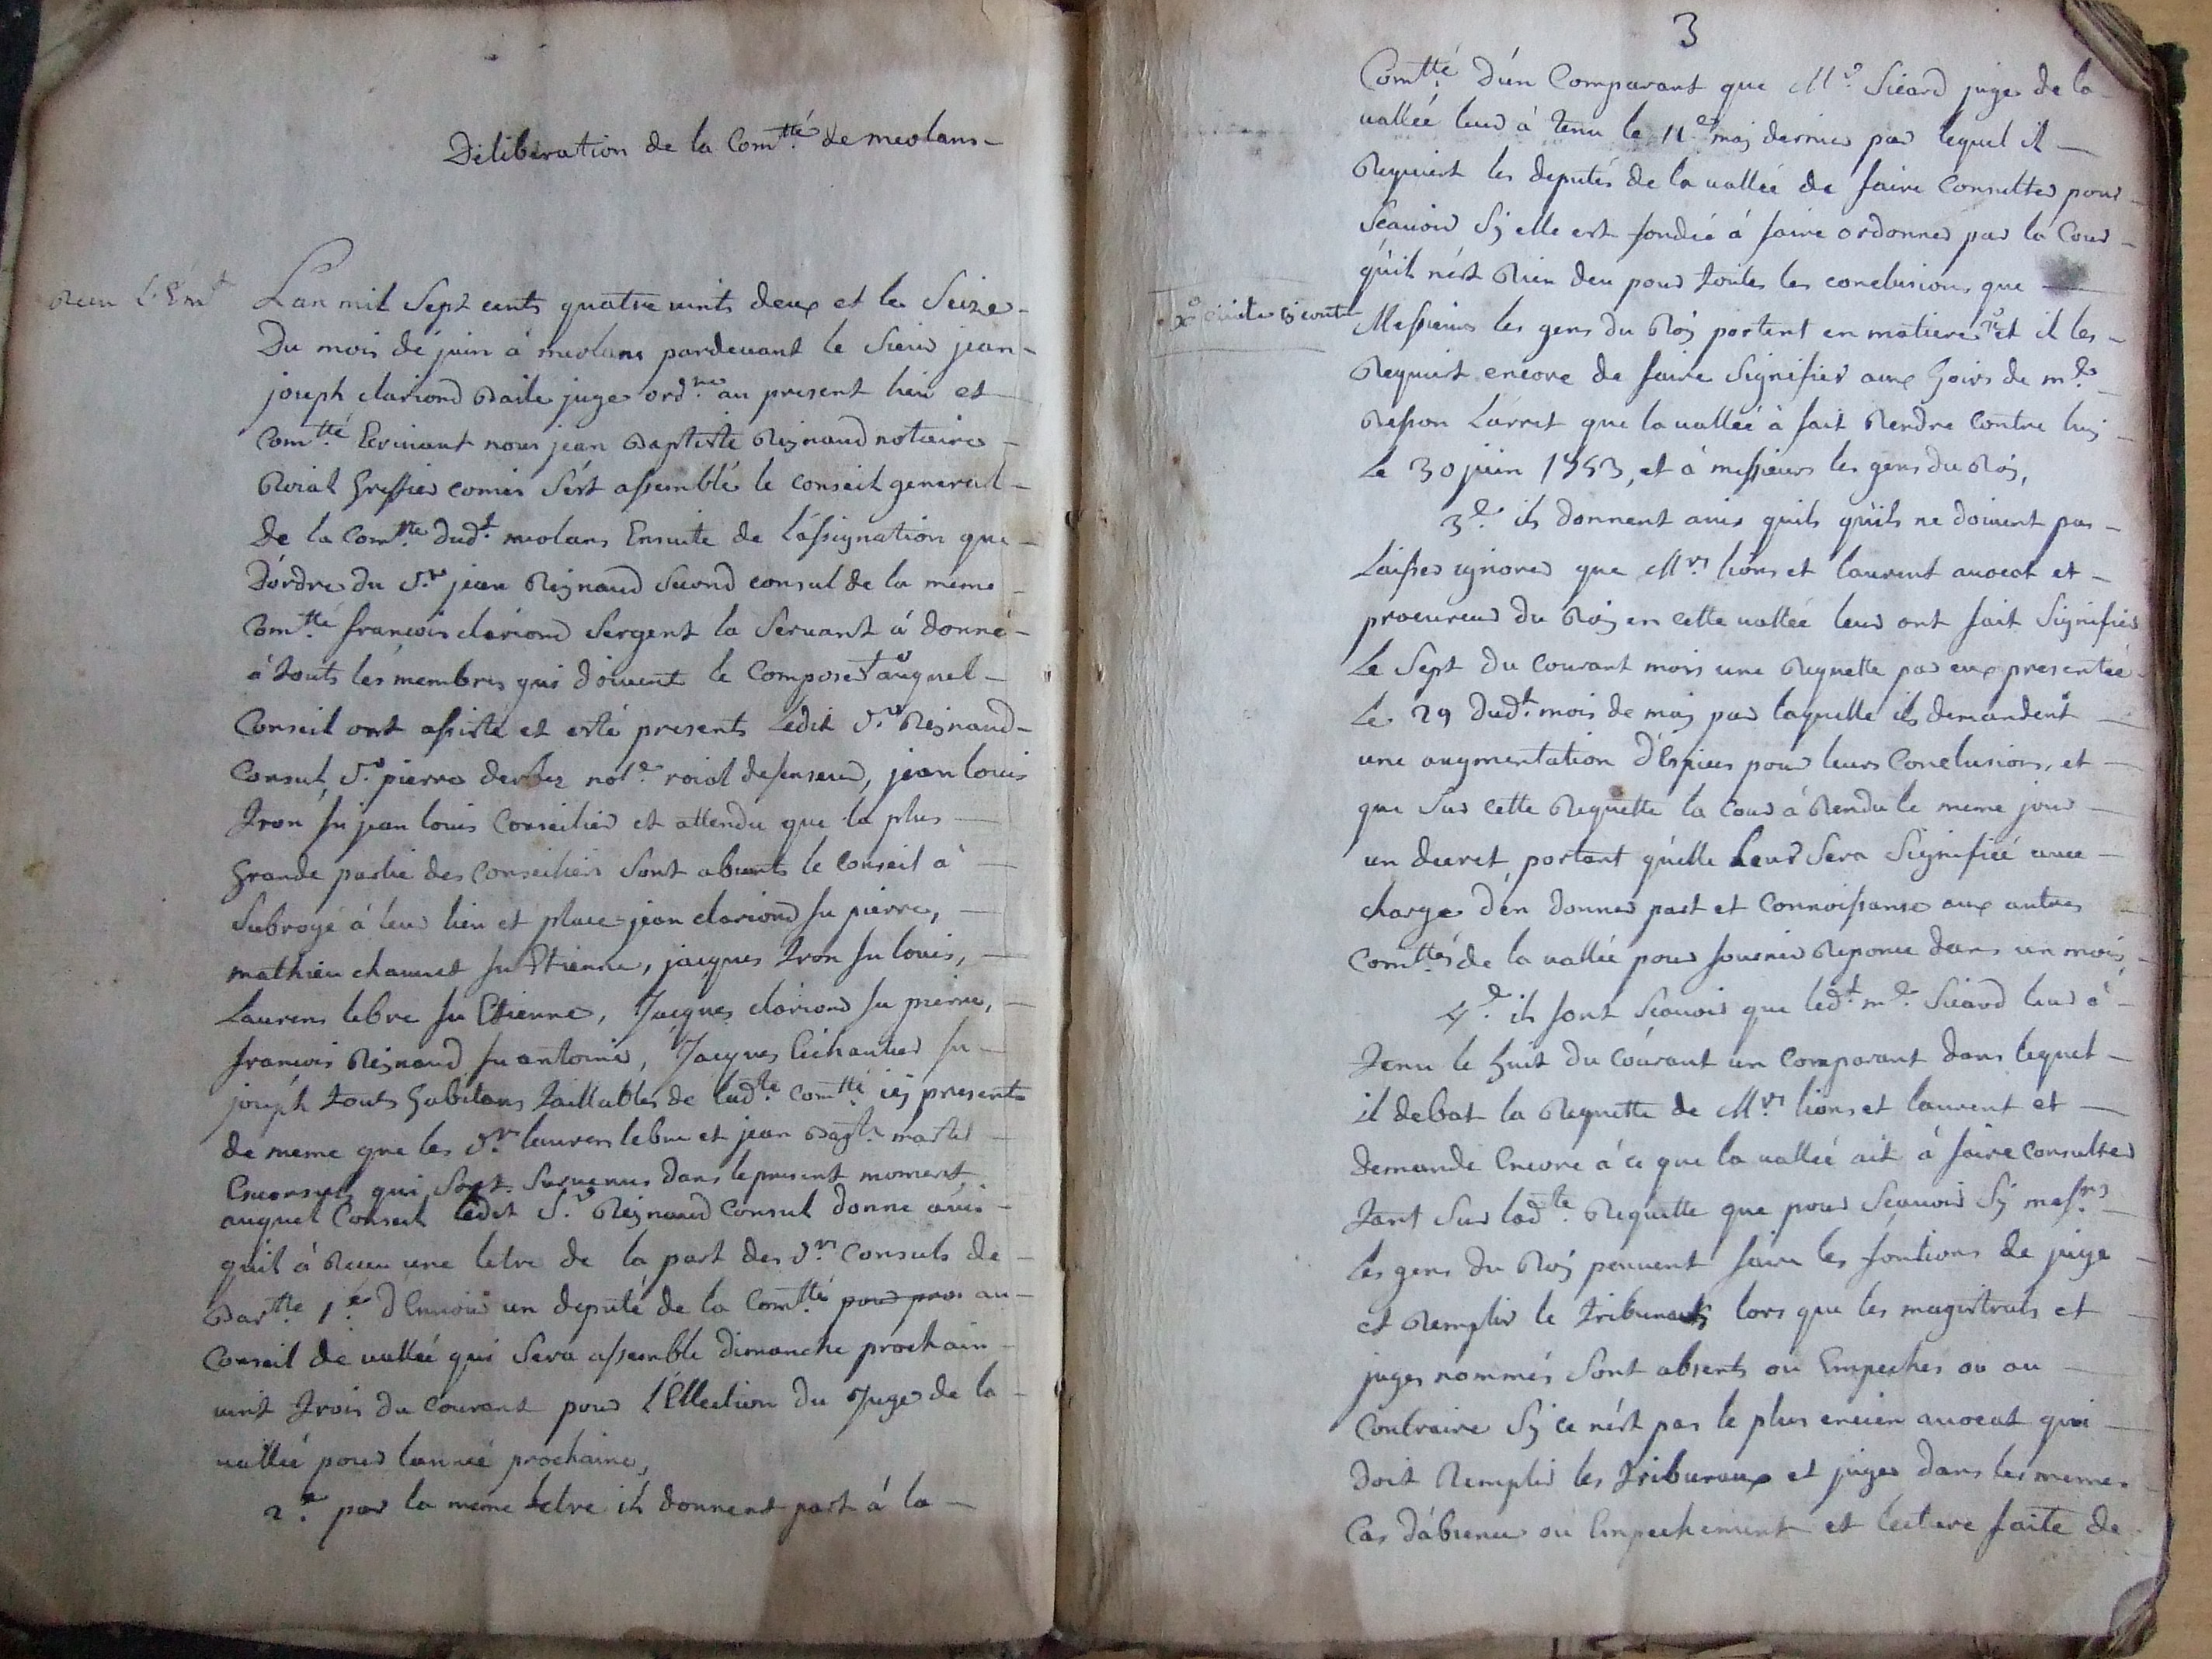 Déliberation de la Comtté de meolans
Lan mil Sept cents quatre vints deux et le Seize
Du mois de juin à meolans pardevant le Sieur jean
joseph clariond Baile juge ordre au present lieu et
Comtté Ecrivant nous jean Baptiste Reynaud notaire
Roial Greffier comis s'est assemblé le conseil general
de la Comtté dudt meolans Ensuite de l'assignation que
d'ordre du Sr jean Reynaud Second consul de la meme
Comtté francois clariond Sergent la Servant à donné
à touts les membres qui doivent le composer auquel
Conseil ont assisté et esté presents Ledit Sr Reynaud
Consul, Sr pierre derbez note roial defenseur, jean louis
Tron fu jean louis Conseilier et attendu que la plus
grande partie des Conseiliers Sont absents le Conseil à
Subrogé à leur lieu et place jean clariond fu pierre,
mathieu chauvet fu Etienne, jacques Tron fu louis,
Laurens lebre fu Etienne, Jacques clariond fu pierre,
francois Reynaud fu antoine, Jacques fu
joseph touts habitans taillables de ladte Comtté icy presents
de meme que les Srs laurens lebre et jean Bapte martel
Exconsuls qui Sont Survenus dans le present moment,
auquel Conseil ledit Sr Reynaud Consul donne avis
quil à Receu une letre de la part des Srs Consuls de
Bartte 1e d'Envoier un deputé de la Comtté pour pro au
Conseil de vallée qui Sera assemblé dimanche prochain
vint trois du Courant pour l'Ellection du Juge de la
vallée pour lannée prochaine,
2e par la meme letre ils donnent part à la
3
Comtté d'un Comparant que Me Sicard juge de la
vallée leur à tenu le 11e may dernier par lequel il
Requiert les deputés de la vallée de faire Consulter pour
Scavoir Sy elle est fondée à faire ordonner par la Cour
qu'il n'est Rien deu pour toutes les conclusions que
Messieurs les gens du Roy portent en matiere et il les
Requiert encore de faire Signifier aux hoirs de me
Besson L'arret que la vallée à fait Rendre contre luy
Le 30 juin 1753, et à messieurs les gens du Roy,
3e ils donnent avis quils qu'ils ne doivent pas
Laisser ignorer que Mrs lions et laurent avocat et
procureur du Roy en cette vallée leur ont fait Signifier
Le Sept du Courant mois une Requette par eux presentée
Le 29 dudt mois de may par laquelle ils demandent
une augmentation d'Espices pour leurs Conclusions, et
que Sur cette Requette la Cour à Rendu le meme jour
un decret, portant qu'elle Leur Sera Signifiée avec
charge d'en donner part et Connoissance aux autres
Comttés de la vallée pour fournir Reponce dans un mois,
4e ils font Scavoir que ledt me Sicard leur à
Tenu le huit du Courant un Comparant dans lequel
il debat la Requette de Mrs lions et laurent et
demande Encore à ce que la vallée ait à faire Consulter
Tant Sur ladte Requette que pour Scavoir Sy messrs
les gens du Roy peuvent faire les fontions de juge
et Remplir le tribunal lors que les magistrats et
juges nommés Sont absents ou Empeches ou au
Contraire Sy ce n'est pas le plus encien avocat qui
Doit Remplir les tribunaux et juger dans les memes
Cas d'absence ou Empechement et lecture faite de